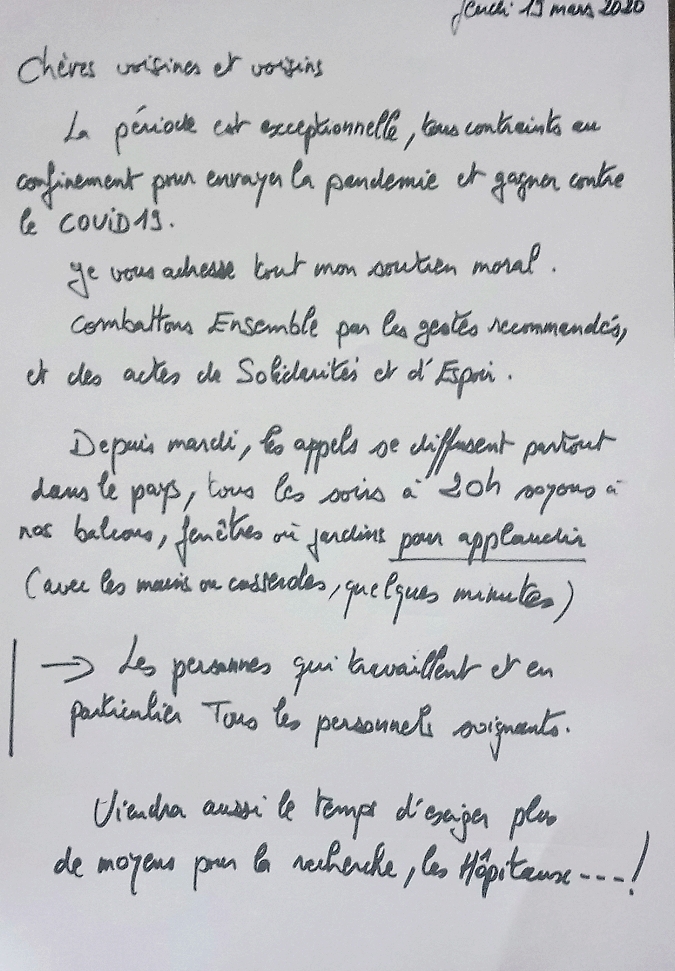 Jeudi 19 mars 2020
Chères voisines et voisins
La période est exceptionnelle, tous contraints au
confinement pour enrayer la pandemie et gagner contre
le COVID19.
Je vous adresse tout mon soutien moral.
Combattons Ensemble par les gestes recommandés,
et des actes de Solidarités et d'Espoir.
Depuis mardi, les appels se diffusent partout
dans le pays, tous les soirs à 20h soyons à
nos balcons, fenêtres où jardins pour applaudir
(avec les mains ou casseroles, quelques minutes)
→ Les personnes qui travaillent et en
particulier Tous les personnels soignants.
Viendra aussi le temps d'exiger plus
de moyens pour la recherche, les Hôpitaux ---!